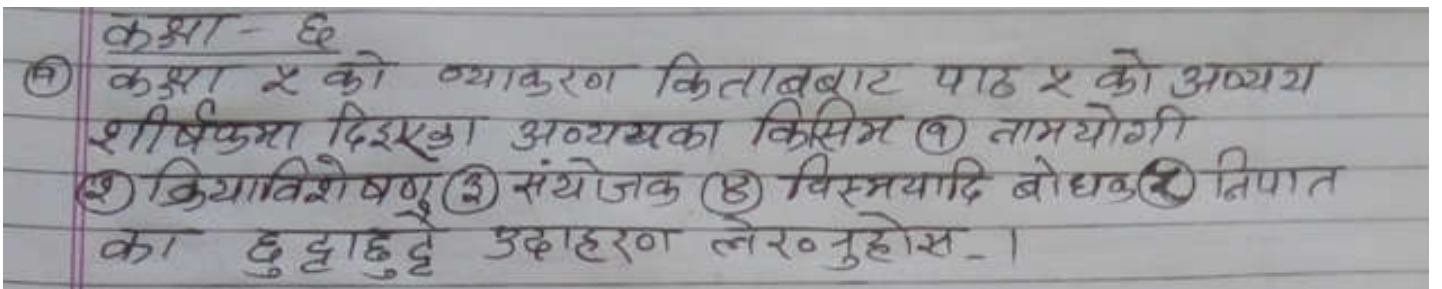 कक्षा - ६
१ कक्षा ५ को व्याकरण किताबबाट पाठ ५ को अव्यय
शीर्षकमा दिइएका अव्ययका किसिम १ नामयोगी
२ क्रियाविशेषण ३ संयोजक ४ विस्मयादि बोधक ५ निपात
का छुट्टाछुट्टै उदाहरण लेख्नुहोस - ।